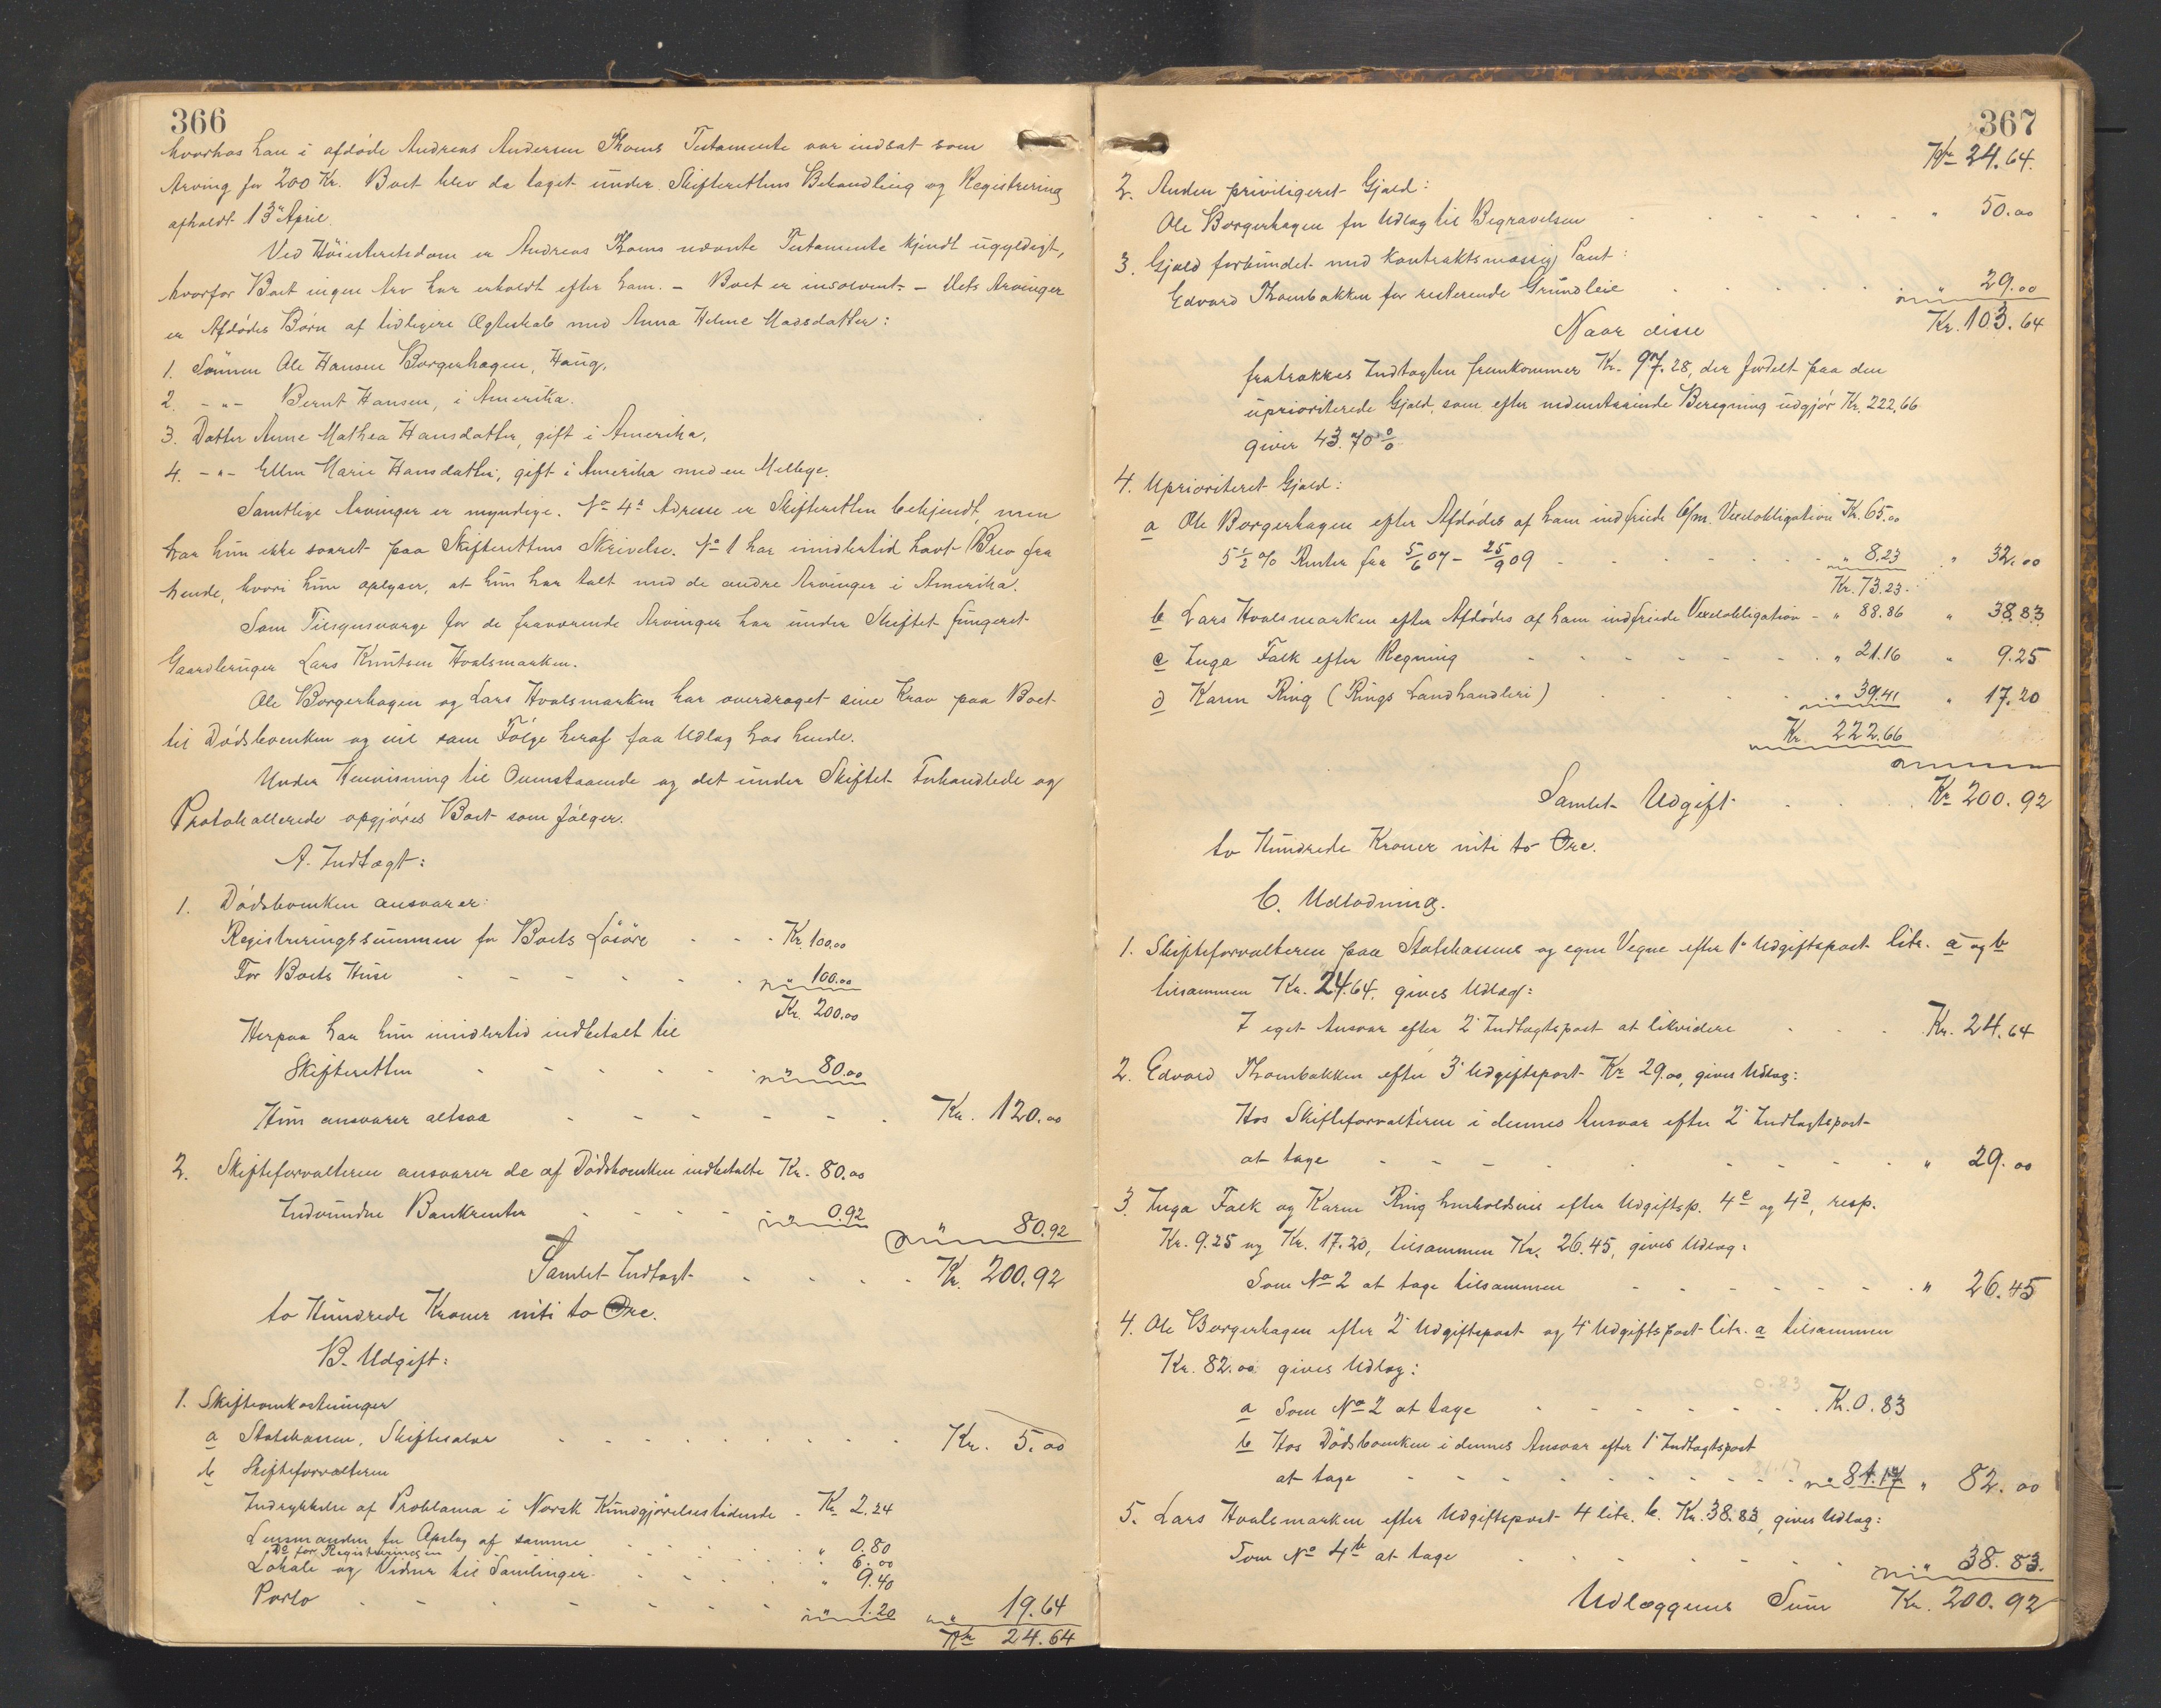 366
hvorhos han i afdøde Andreas Andersen Thoms Testamente var indsat som
Arving for 200 Kr. Boet blev da taget under Skifterettens Behandling og Registrering
afholdt 13de April.
Ved Höiesteretsdom er Andreas Thoms nævnte Testamente kjendt ugyldigt,
hvorfor Boet ingen Arv har erholdt efter ham. – Boet er insolvent. – Dets Arvinger
er Afdödes Börn af tidligere Ægteskab med Anna Helene Madsdatter:
1. Sönnen Ole Hansen Borgerhagen, Haug,
2. - „ - Bernt Hansen, i Amerika.
3. Datter Anne Mathea Hansdatter, gift i Amerika,
4. - „ - Ellen Marie Hansdatter, gift i Amerika med en Mellbye.
Samtlige Arvinger er myndige. No 4s Adresse er Skifteretten bekjendt, men
har hun ikke svaret paa Skifterettens Skrivelse. No 1 har imidlertid havt Brev fra
hende, hvori hun oplyser, at hun har talt med de andre Arvinger i Amerika.
Som Tilsynsværge for de fraværende Arvinger har under Skiftet fungeret
Gaardbruger Lars Knutsen Hvalsmarken.
Ole Borgerhagen og Lars Hvalsmarken har overdraget sine Krav paa Boet
til Dödsboenken og vil som Fölge heraf faa Udlæg hos hende.
Under Henvisning til Ovenstaaende og det under Skiftet Forhandlede og
Protokollerede opgjöres Boet som fölger.
A. Indtægt:
1. Dödsboenken ansvarer:
Registreringssummen for Boets Lösöre - - - Kr. 100.00
For Boets Huse - - - - - - „ 100.00
Kr. 200.00
Herpaa har hun imidlertid indbetalt til
Skifteretten - - - - - „ 80.00
Hun ansvarer altsaa - - - - - - Kr. 120.00
2. Skifteforvalteren ansvarer de af Dödsboenken indbetalte Kr. 80.00
Indvundne Bankrenter - - - - „ 0.92 „ 80.92
Samlet Indtægt - - - - Kr. 200.92
to Hundrede Kroner niti to Øre.
B. Udgift:
1. Skifteomkostninger
a Statskassen, Skifteafgift - - - - - - - - - Kr. 5.00
b Skifteforvalteren
Indrykkelse af Proklama i Norsk Kundgjörelsestidende - Kr. 2.24
Lensmanden for Opslag af samme - - - - - „ 0.80
Do for Registreringen - - - - - „ 6.00
Lokale og Vidner til Samlinger - - - - „ 9.40
Porto - - - - - - - - „ 1.20 „ 19.64
Kr 24.64
367
Kr 24.64.
2. Anden priviligeret Gjæld:
Ole Borgerhagen for Udlæg til Begravelsen - - - - - - „ 50.00
3. Gjæld forbundet med kontraktsmæssig Pant:
Edvard Thombakken for resterende Grundleie - - - - - „ 29.00
Kr. 103.64
Naar disse
fratrækkes Indtægten fremkommer Kr. 97.28, der fordelt paa den
uprioriterede Gjæld, som efter nedenstaaende Beregning udgjör Kr. 222,66
giver 43.70 %
4. Uprioriteret Gjæld:
a Ole Borgerhagen efter Afdödes af ham indfriede 6/m. Vexelobligation Kr. 65.00
5 1/2 % Renter fra 5/6 07 – 25/9 09 - - - - - - „ 8.23 „ 32.00
Kr. 73.23.
b Lars Hvalsmarken efter Afdödes af ham indfriede Vexelobligation - „ 88.86 „ 38.83
c Inga Falk efter Regning - - - - - - - „ 21.16 „ 9.25
d Karen Ring (Rings Landhandleri) - - - - „ 39.41 „ 17.20
Kr. 222.66
Samlet Udgift - - - Kr 200.92
to Hundrede Kroner niti to Øre.
C. Udlodning.
1. Skifteforvalteren paa Statskassens og egne Vegne efter 1ste Udgiftspost litr. a og b
tilsammen Kr. 24.64. gives Udlæg:
I eget Ansvar efter 2den Indtægtspost at likvidere - - - Kr. 24.64
2. Edvard Thombakken efter 3die Udgiftspost Kr 29.00, gives Udlæg:
Hos Skifteforvalteren i dennes Ansvar efter 2den Indtægtspost
at tage - - - - - - - - „ 29.00
3. Inga Falk og Karen Ring henholdsvis efter Udgiftsp. 4c og 4d, resp.
Kr. 9.25 og Kr. 17.20, tilsammen Kr. 26.45, gives Udlæg:
Som No 2 at tage tilsammen - - - - - - „ 26.45
4. Ole Borgerhagen efter 2den Udgiftspost og 4de Udgiftspost litr. a tilsammen
Kr. 82.00 gives Udlæg:
a Som No 2 at tage - - - - - - - Kr. 0.83
b Hos Dödsboenken i dennes Ansvar efter 1ste Indtægtspost
at tage - - - - - - - - - - „ 81.17 „ 82.00
5. Lars Hvalsmarken efter Udgiftspost 4 litr. b. Kr. 38.83, gives Udlæg:
Som No 4b at tage - - - - - - - „ 38.83.
Udlæggenes Sum Kr. 200.92